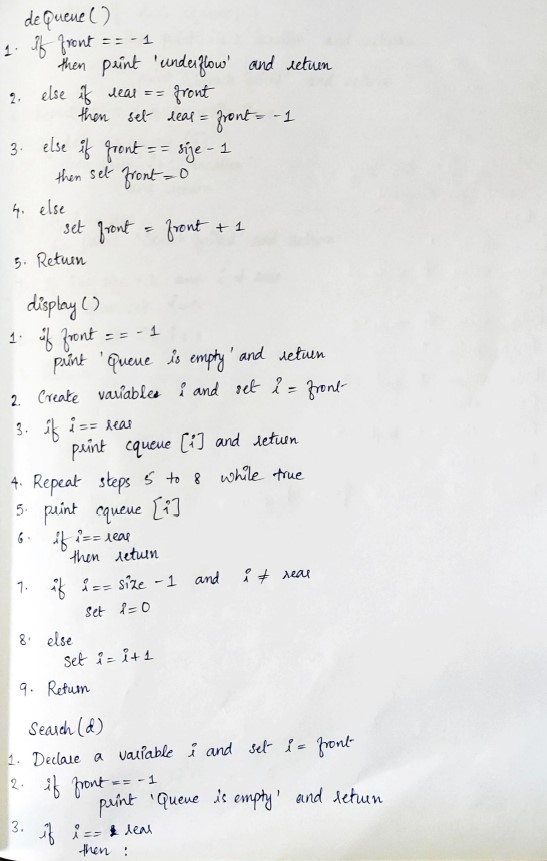 deQueue()
1. if front == -1
then print 'underflow' and return
2. else if rear == front
then set rear = front = -1
3. else if front == size - 1
then set front = 0
4. else
set front = front + 1
5. Return
display()
1. if front == -1
print 'Queue is empty' and return
2. Create variable i and set i = front
3. if i == rear
print cqueue [i] and return
4. Repeat steps 5 to 8 while true
5. print cqueue [i]
6. if i == rear
then return
7. if i == size - 1 and i ≠ rear
set i = 0
8. else
set i = i + 1
9. Return
Search(d)
1. Declare a variable i and set i = front
2. if front == -1
print 'Queue is empty' and return
3. if i == rear
then :